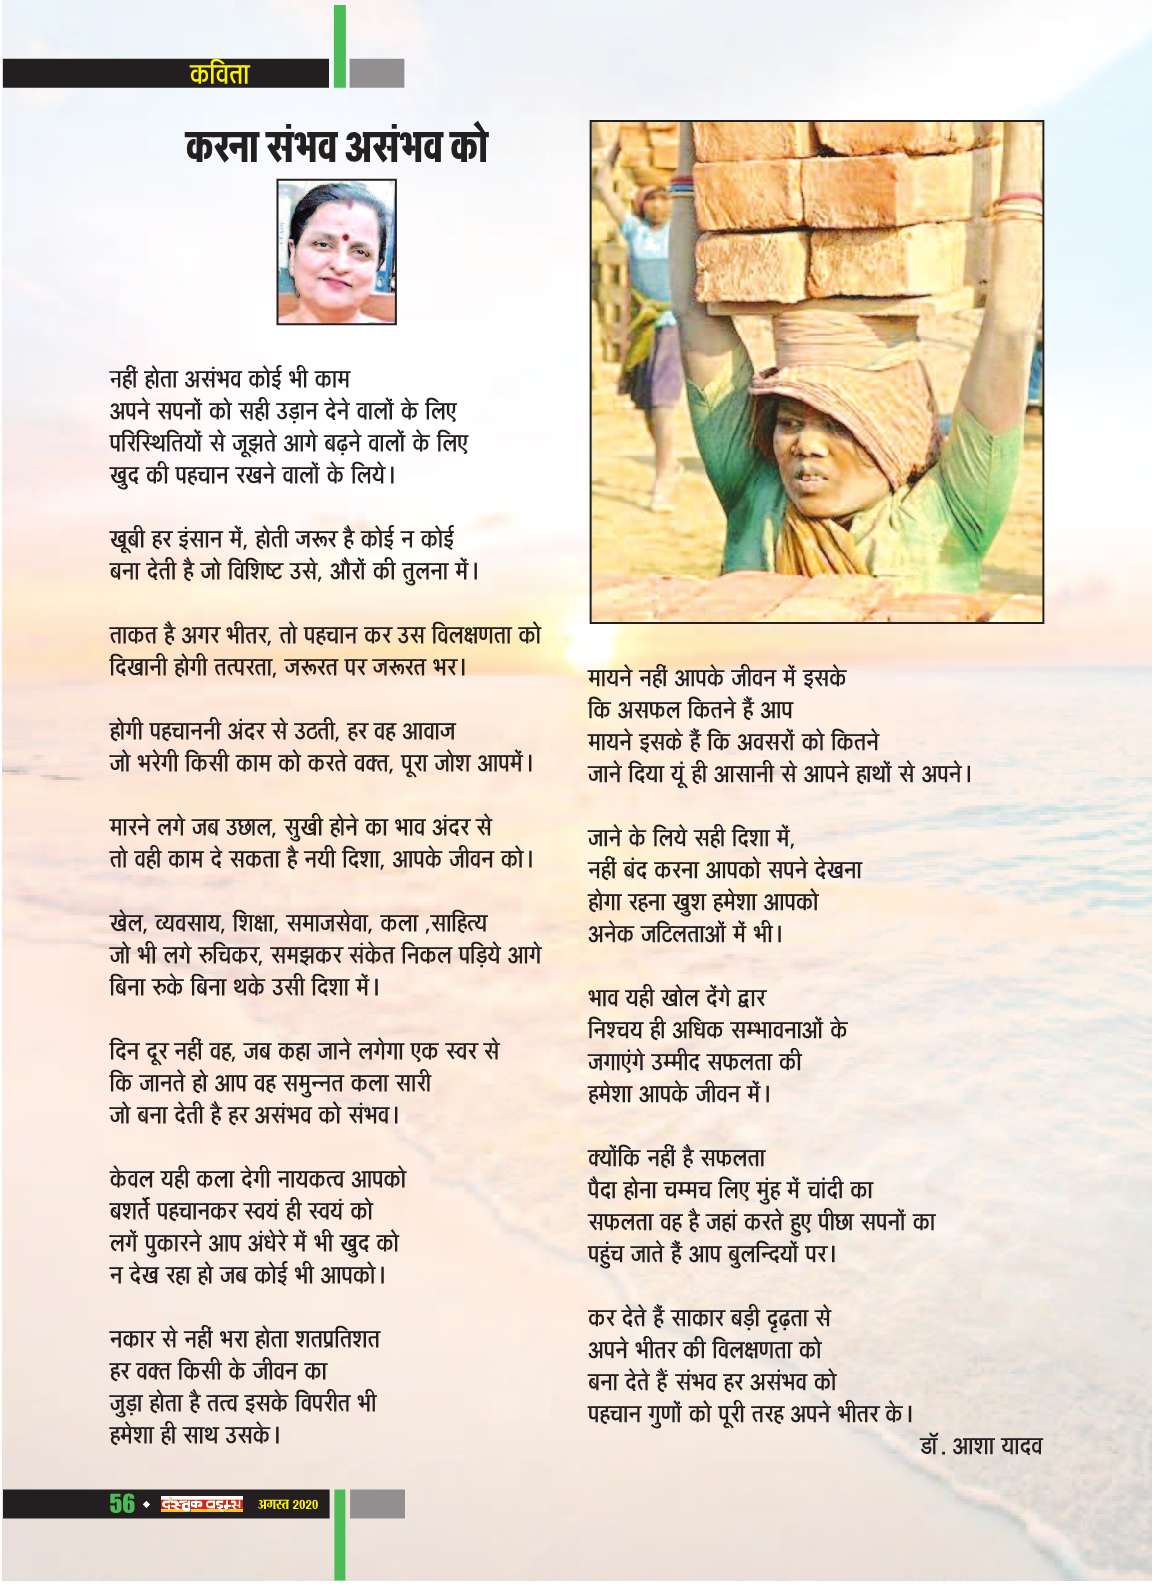 कविता
करना संभव असंभव को
नहीं होता असंभव कोई भी काम
अपने सपनों को सही उड़ान देने वालों के लिए
परिस्थितियों से जूझते आगे बढ़ने वालों के लिए
खुद की पहचान रखने वालों के लिये।
खूबी हर इंसान में, होती जरूर है कोई न कोई
बना देती है जो विशिष्ट उसे, औरों की तुलना में।
ताकत है अगर भीतर, तो पहचान कर उस विलक्षणता को
दिखानी होगी तत्परता, जरूरत पर जरूरत भर।
होगी पहचाननी अंदर से उठती, हर वह आवाज
जो भरेगी किसी काम को करते वक्त, पूरा जोश आपमें।
मारने लगे जब उछाल, सुखी होने का भाव अंदर से
तो वही काम दे सकता है नयी दिशा, आपके जीवन को।
खेल, व्यवसाय, शिक्षा, समाजसेवा, कला ,साहित्य
जो भी लगे रुचिकर, समझकर संकेत निकल पड़िये आगे
बिना रुके बिना थके उसी दिशा में।
दिन दूर नहीं वह, जब कहा जाने लगेगा एक स्वर से
कि जानते हो आप वह समुन्नत कला सारी
जो बना देती है हर असंभव को संभव।
केवल यही कला देगी नायकत्व आपको
बशर्ते पहचानकर स्वयं ही स्वयं को
लगें पुकारने आप अंधेरे में भी खुद को
न देख रहा हो जब कोई भी आपको।
नकार से नहीं भरा होता शतप्रतिशत
हर वक्त किसी के जीवन का
जुड़ा होता है तत्व इसके विपरीत भी
हमेशा ही साथ उसके।
मायने नहीं आपके जीवन में इसके
कि असफल कितने हैं आप
मायने इसके हैं कि अवसरों को कितने
जाने दिया यूं ही आसानी से आपने हाथों से अपने।
जाने के लिये सही दिशा में,
नहीं बंद करना आपको सपने देखना
होगा रहना खुश हमेशा आपको
अनेक जटिलताओं में भी।
भाव यही खोल देंगे द्वार
निश्चय ही अधिक सम्भावनाओं के
जगाएंगे उम्मीद सफलता की
हमेशा आपके जीवन में।
क्योंकि नहीं है सफलता
पैदा होना चम्मच लिए मुंह में चांदी का
सफलता वह है जहां करते हुए पीछा सपनों का
पहुंच जाते हैं आप बुलन्दियों पर।
कर देते हैं साकार बड़ी दृढ़ता से
अपने भीतर की विलक्षणता को
बना देते हैं संभव हर असंभव को
पहचान गुणों को पूरी तरह अपने भीतर के।
डॉ. आशा यादव
56 दस्तक टाइम्स अगस्त 2020